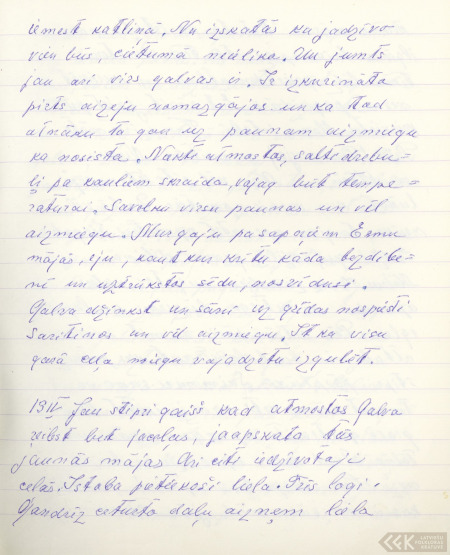 iemest katliņā. Nu izskatās ka jadzīvo
vien būs, cietumā neielika. Un jumts
jau arī virs galvas ir. Ir izkurināta
pirts aizeju nomazgājos un ka tad
atnāku tā gan uz paunam aizmiegu
ka nosista. Naktī atmostos, salti drebu=
ļi pa kauliem skraida, vajag būt tempe=
ratūrai. Savelku virsu paunas un vēl
aizmiegu. Murgaju pa sapņiem Esmu
mājās, eju, kautkur krītu kāda bezdibe=
nī un uztrūkstos sēdu, nosvīdusi.
Galva džinkst un sāni uz grīdas nospiesti
Saritinos un vēl aizmiegu. It kā visu
garā ceļa miegu vajadzētu izgulēt.
19IV Jau stipri gaišs kad atmostos Galva
reibst bet jaceļas, jaapskata tās
jaunās mājas. Arī citi iedzīvotaji
ceļās. Istaba pietiekoši liela. Trīs logi.
Gandrīz ceturto daļu aizņem liela
LATVIEŠU FOLKLORAS KRĀTUVE